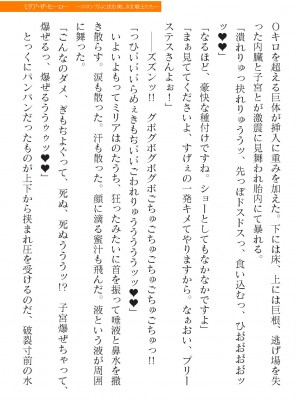 Ｏキロを超える巨体が挿入に重みを加えた。下には床、上には巨根、逃げ場を失
った内臓と子宮とが激震に見舞われ胎内にて暴れる。
「潰れりゅっ挟れりゅううッ、先っぽドスドスっ、食い込むっ、ひおおおおッ
ッ♥♥」
「なるほど、豪快な種付けですね。ショーとしてもなかなかですよ」
「まぁ見ててくださいよ、すげぇの一発キメてやりますから。なぁおい、プリー
ステスさんよぉ！」
――ズズンッ!!　グボグボグボグボごちゅごちゅごちゅごちゅごちゅっ!!
「つひいいいらめぇきもちいいごわれりゅううううッッ♥♥」
いよいよもってミリアはのたうち、狂ったみたいに首を振って唾液と鼻水を撒
き散らす。涙も散った。汗も散った。顔に滴る蜜汁も飛んだ。液という液が周囲
に舞った。
「こんなのダメ、ぎもぢよくって、死ぬ、死ぬうううッ!?　子宮爆ぜちゃって、
爆ぜるっ、爆ぜるぅうゥゥッ♥♥」
とっくにパンパンだったものが上下から挟まれ圧を受けるのだ、破裂寸前の水